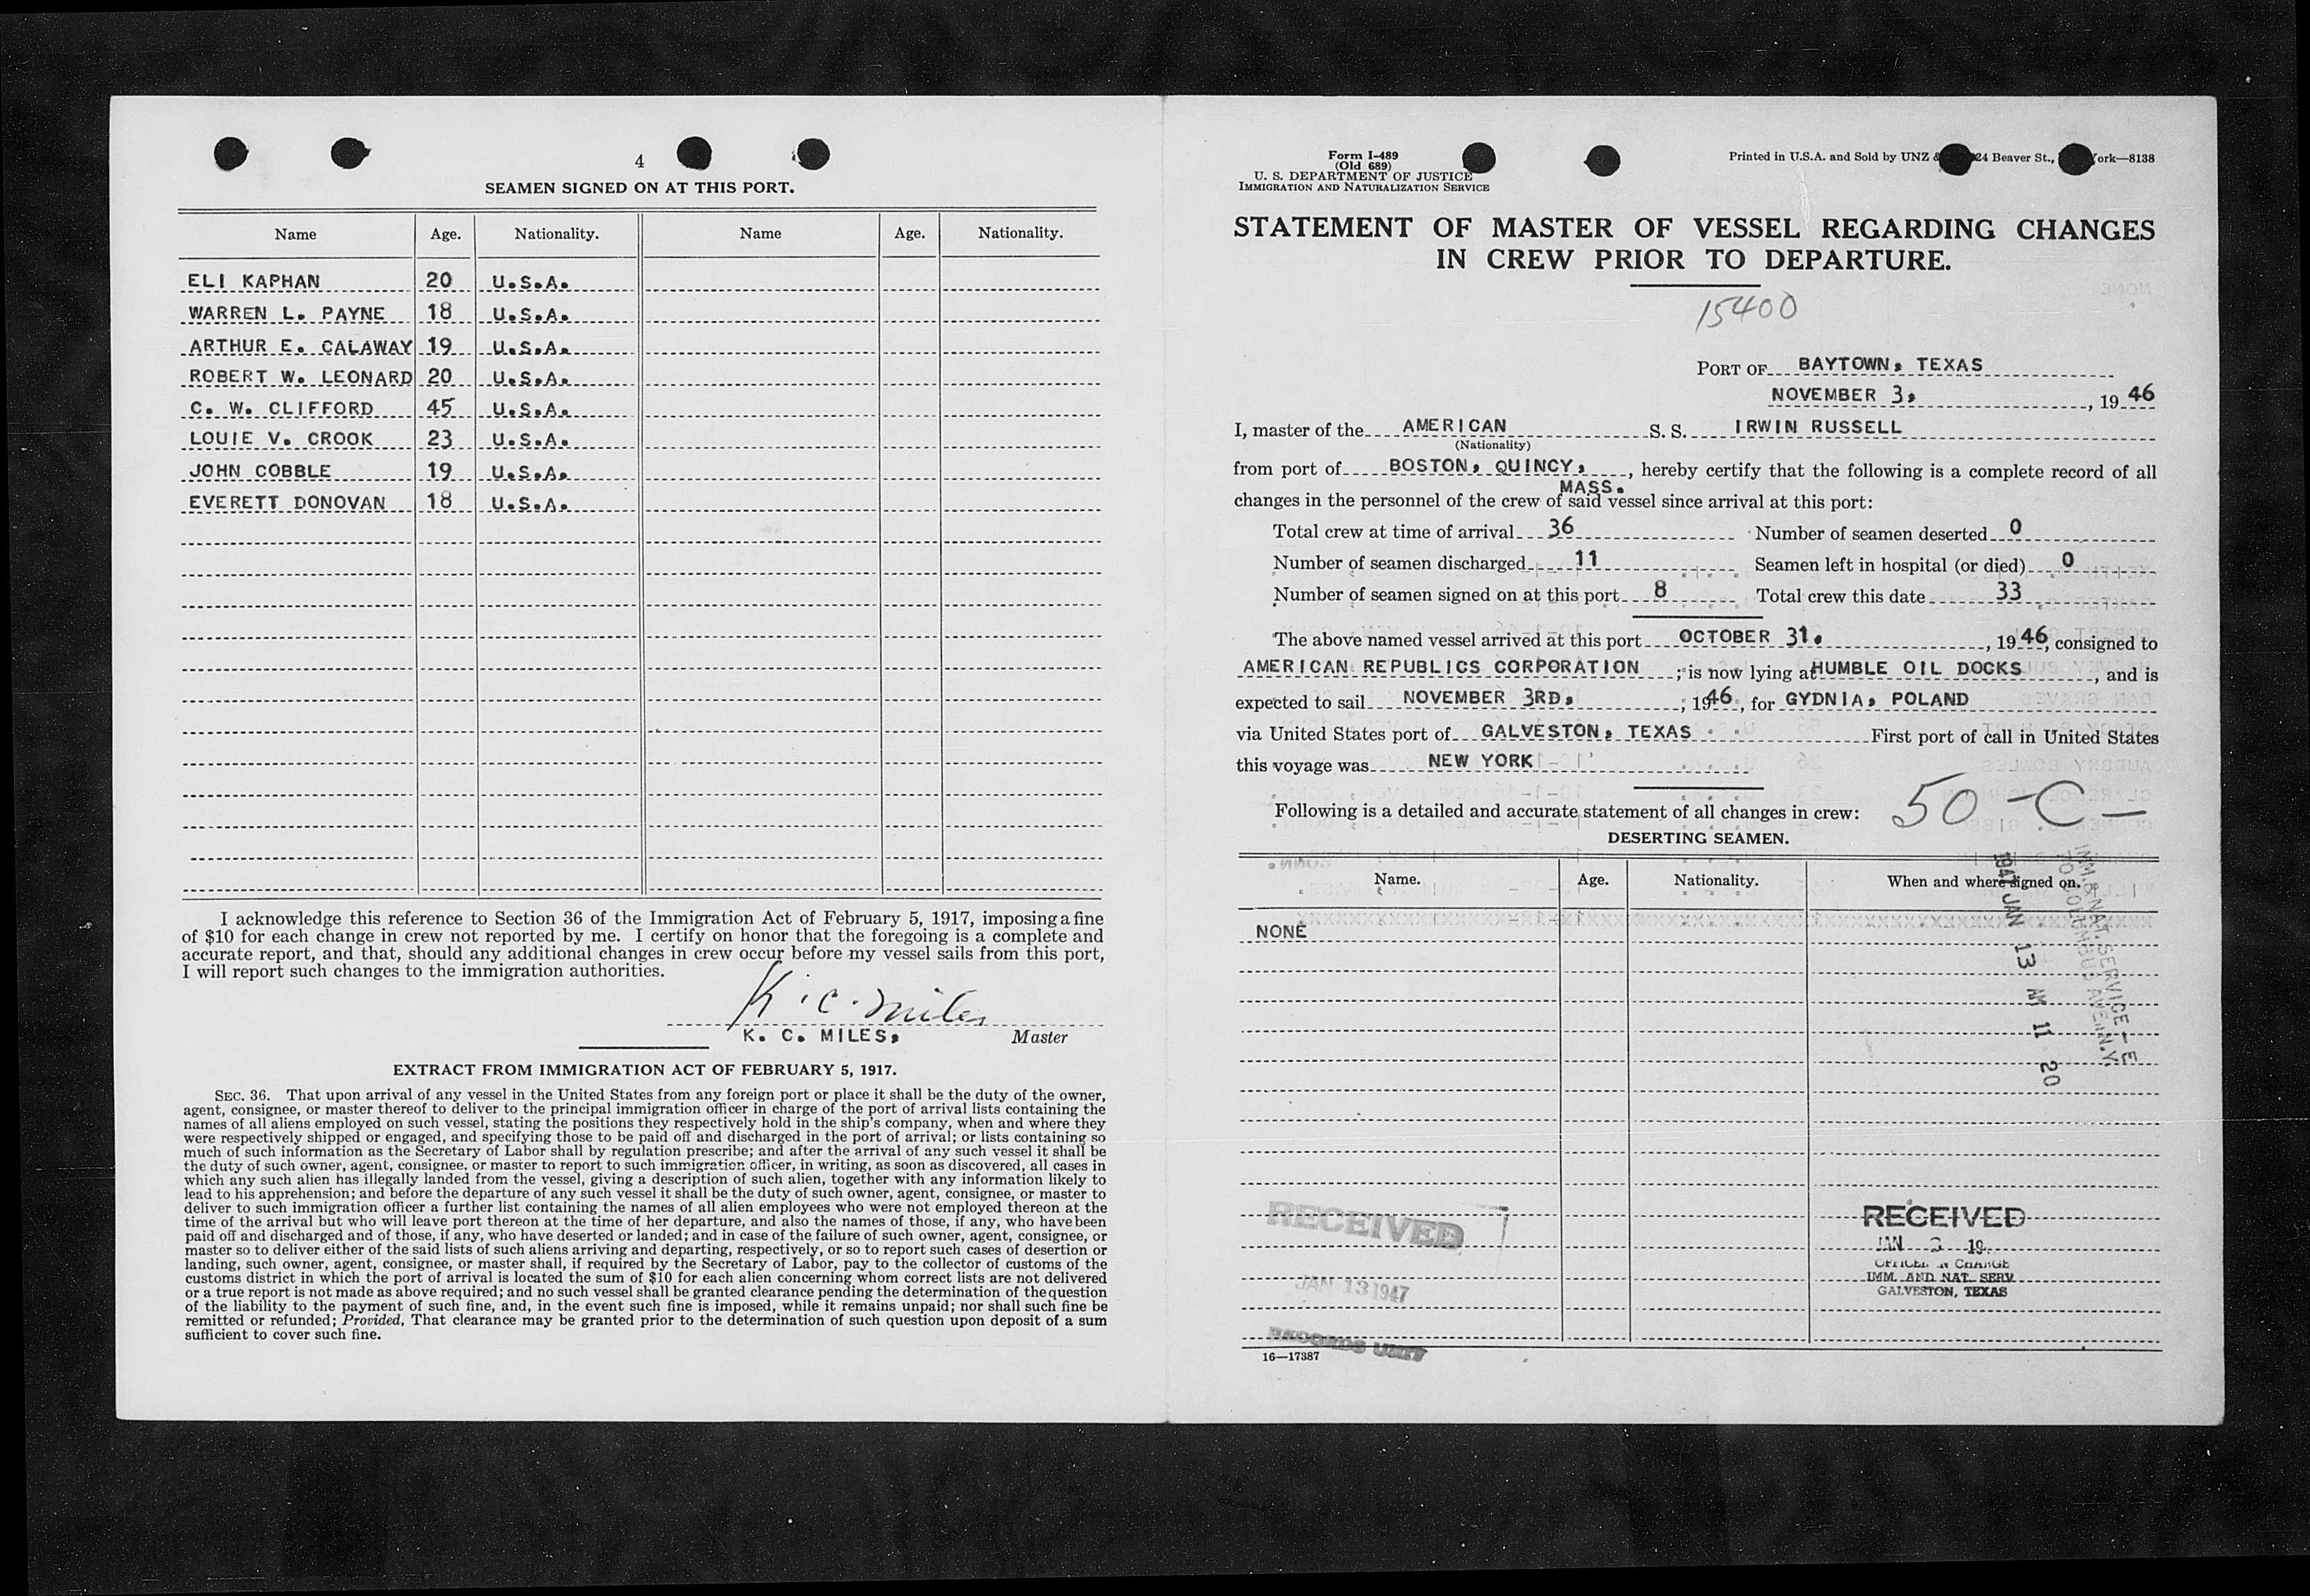 4
SEAMEN SIGNED ON AT THIS PORT.
Name Age. Nationality. Name Age. Nationality.
ELI KAPHAN 20 U.S.A.
WARREN L. PAYNE 18 U.S.A.
ARTHUR E. CALAWAY 19 U.S.A.
ROBERT W. LEONARD 20 U.S.A.
C. W. CLIFFORD 45 U.S.A.
LOUIE V. CROOK 23 U.S.A.
JOHN COBBLE 19 U.S.A.
EVERETT DONOVAN 18 U.S.A.
I acknowledge this reference to Section 36 of the Immigration Act of February 5, 1917, imposing a fine
of $10 for each change in crew not reported by me. I certify on honor that the foregoing is a complete and
accurate report, and that, should any additional changes in crew occur before my vessel sails from this port,
I will report such changes to the immigration authorities.
K. C. Miles
K. C. MILES, Master
EXTRACT FROM IMMIGRATION ACT OF FEBRUARY 5, 1917.
SEC. 36. That upon arrival of any vessel in the United States from any foreign port or place it shall be the duty of the owner,
agent, consignee, or master thereof to deliver to the principal immigration officer in charge of the port of arrival lists containing the
names of all aliens employed on such vessel, stating the positions they respectively hold in the ship's company, when and where they
were respectively shipped or engaged, and specifying those to be paid off and discharged in the port of arrival; or lists containing so
much of such information as the Secretary of Labor shall by regulation prescribe; and after the arrival of any such vessel it shall be
the duty of such owner, agent, consignee, or master to report to such immigration officer, in writing, as soon as discovered, all cases in
which any such alien has illegally landed from the vessel, giving a description of such alien, together with any information likely to
lead to his apprehension; and before the departure of any such vessel it shall be the duty of such owner, agent, consignee, or master to
deliver to such immigration officer a further list containing the names of all alien employees who were not employed thereon at the
time of the arrival but who will leave port thereon at the time of her departure, and also the names of those, if any, who have been
paid off and discharged and of those, if any, who have deserted or landed; and in case of the failure of such owner, agent, consignee, or
master so to deliver either of the said lists of such aliens arriving and departing, respectively, or so to report such cases of desertion or
landing, such owner, agent, consignee, or master shall, if required by the Secretary of Labor, pay to the collector of customs of the
customs district in which the port of arrival is located the sum of $10 for each alien concerning whom correct lists are not delivered
or a true report is not made as above required; and no such vessel shall be granted clearance pending the determination of the question
of the liability to the payment of such fine, and, in the event such fine is imposed, while it remains unpaid; nor shall such fine be
remitted or refunded; Provided, That clearance may be granted prior to the determination of such question upon deposit of a sum
sufficient to cover such fine.
Form I-489
(Old 689)
U. S. DEPARTMENT OF JUSTICE
IMMIGRATION AND NATURALIZATION SERVICE
Printed in U.S.A. and Sold by UNZ & 24 Beaver St., York—8138
STATEMENT OF MASTER OF VESSEL REGARDING CHANGES
IN CREW PRIOR TO DEPARTURE.
15400
PORT OF BAYTOWN, TEXAS
NOVEMBER 3, , 19 46
I, master of the AMERICAN S. S. IRWIN RUSSELL
(Nationality)
from port of BOSTON, QUINCY, , hereby certify that the following is a complete record of all
MASS.
changes in the personnel of the crew of said vessel since arrival at this port:
Total crew at time of arrival 36 Number of seamen deserted 0
Number of seamen discharged 11 Seamen left in hospital (or died) 0
Number of seamen signed on at this port 8 Total crew this date 33
The above named vessel arrived at this port OCTOBER 31. , 19 46, consigned to
AMERICAN REPUBLICS CORPORATION ; is now lying at HUMBLE OIL DOCKS , and is
expected to sail NOVEMBER 3RD, ; 1946, for GYDNIA, POLAND
via United States port of GALVESTON, TEXAS First port of call in United States
this voyage was NEW YORK
Following is a detailed and accurate statement of all changes in crew: 50 -C-
DESERTING SEAMEN.
Name. Age. Nationality. When and where signed on.
NONE
1947 JAN 13 AM 11 20
IMM & NAT. SERVICE
RECEIVED
JAN 13 1947
RECORDS UNIT
RECEIVED
JAN 3 19
OFFICER IN CHARGE
IMM. AND NAT. SERV.
GALVESTON, TEXAS
16—17387